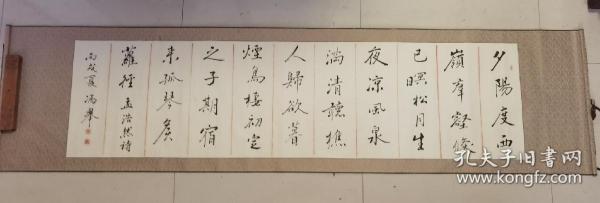 夕陽度西
嶺羣壑倏
已暝松月生
夜涼風泉
滿清聽樵
人歸欲盡
煙鳥棲初定
之子期宿
来孤琴候
蘿徑 孟浩然詩
丙戌夏 馮
孔夫子旧书网
www.kongfz.com